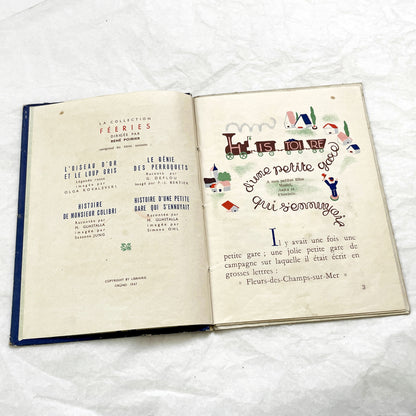 LA COLLECTION
FÉERIES
DIRIGÉE PAR
RENÉ POIRIER
comprend les titres suivants :
L'OISEAU D'OR
ET LE LOUP GRIS
Légende russe
imagée par
OLGA KOVALEVSKY
HISTOIRE
DE MONSIEUR COLIBRI
Racontée par
M. GUASTALLA
imagée par
Suzanne JUNG
LE GÉNIE
DES PERROQUETS
Racontée par
G. DEFLOU
Imagé par P.-J. BERTIER
HISTOIRE D'UNE PETITE
GARE QUI S'ENNUYAIT
Racontée par
M. GUASTALLA
imagée par
Simone OHL
COPYRIGHT BY LIBRAIRIE
GRÜND 1947
HISTOIRE
d'une petite gare
qui s'ennuyait
A mes petites filles
Il y avait une fois une
petite gare ; une jolie petite gare de
campagne sur laquelle il était écrit en
grosses lettres :
« Fleurs-des-Champs-sur-Mer »
3